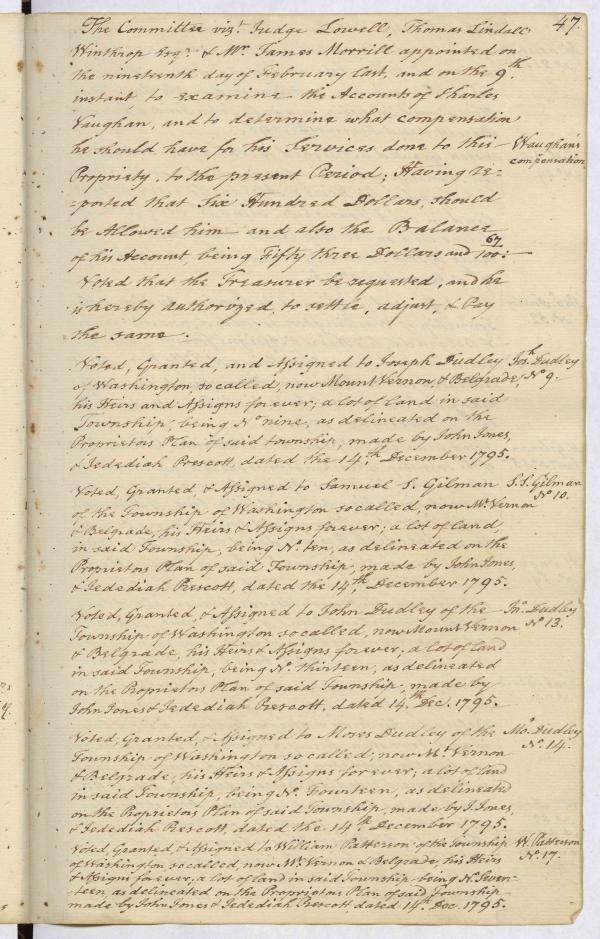 47.
The Committee vizt. Judge Lowell, Thomas Lindall
Winthrop Esqr. & Mr. James Morrill appointed on
the nineteenth day of February last, and on the 9th.
instant, to examine the Accounts of Charles
Vaughan, and to determine what compensation
he should have for his Services done to this
Propriety, to the present Period; Having re=
=ported that Six Hundred Dollars, should
be Allowed him and also the Balance
of his Account, being Fifty three Dollars and 67/100:
Vaughan's
compensation
Voted that the Treasurer be requested, and he
is hereby authorized, to settle, adjust, & Pay
the same.
Voted, Granted, and Assigned to Joseph Dudley
of Washington, so called, now Mount Vernon, & Belgrade,
his Heirs and Assigns for ever; a lot of land in said
Township, being No nine, as delineated on the
Proprietors Plan of said township, made by John Jones,
& Jedediah Prescott, dated the 14th. December 1795.
Josh. Dudley
No 9.
Voted, Granted, & Assigned to Samuel S. Gilman
of the Township of Washington so called, now Mt. Vernon
& Belgrade, his Heirs & Assigns forever; a lot of land,
in said Township, being No. ten, as delineated on the
Proprietors Plan of said Township, made by John Jones,
& Jedediah Prescott, dated the 14th. December 1795.
S. S. Gilman
No 10.
Voted, Granted, & Assigned to John Dudley of the
Township of Washington so called, now Mount Vernon
& Belgrade, his Heirs & Assigns forever; a lot of land
in said Township, being No. thirteen, as delineated
on the Proprietors Plan of said Township, made by
John Jones & Jedediah Prescott, dated 14th. Dec. 1795.
Jno. Dudley
No 13.
Voted, Granted, & Assigned to Moses Dudley of the
Township of Washington so called; now Mt. Vernon
& Belgrade; his Heirs & Assigns for ever; a lot of land
in said Township, being No. Fourteen, as delineated
on the Proprietors Plan of said Township, made by J. Jones,
& Jedediah Prescott, dated the 14th. December 1795.
Mo. Dudley
No. 14.
Voted, Granted, & Assigned to William Patterson of the Township
of Washington so called, now Mt. Vernon & Belgrade, his Heirs
& Assigns for ever, a lot of land in said Township being No. Seven=
=teen, as delineated on the Proprietors Plan of said Township
made by John Jones & Jedediah Prescott, dated 14th. Dec. 1795.
W. Patterson
No. 17.